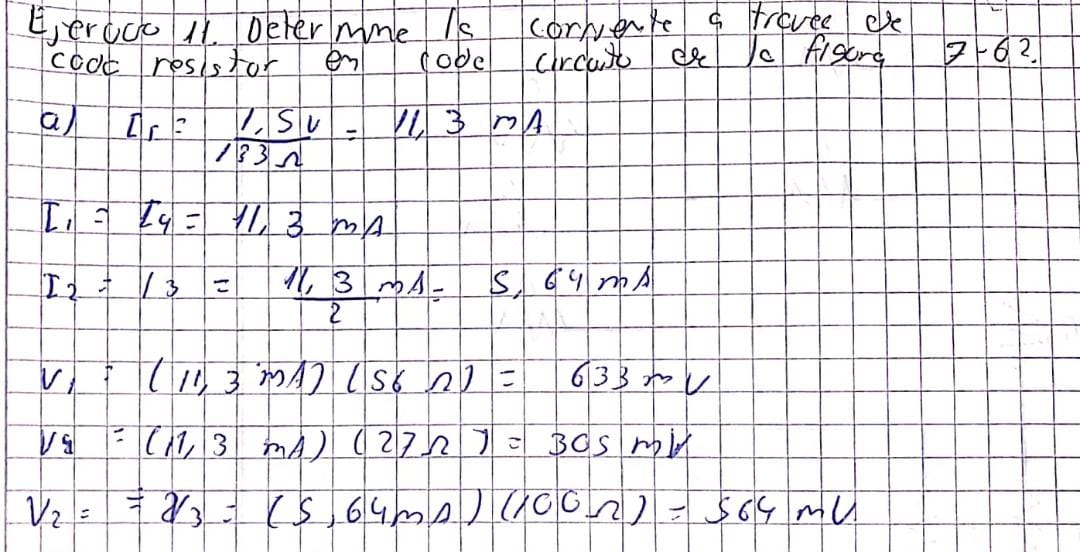 Ejercicio 11. Determine la corriente a travee de
cada resistor en cada circuito de la figura 7-62.
a) IT = 1,5 V / 133 Ω = 11,3 mA
I1 = I4 = 11,3 mA
I2 = I3 = 11,3 mA / 2 = 5,64 mA
V1 = (11,3 mA) (56 Ω) = 633 mV
V4 = (11,3 mA) (27 Ω) = 305 mV
V2 = = V3 = (5,64 mA) (100 Ω) = 564 mV